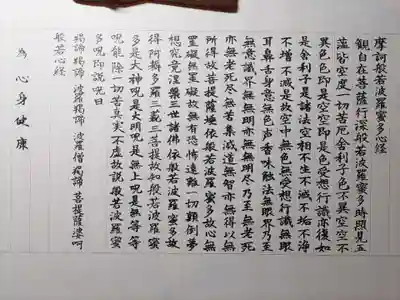 摩訶般若波羅蜜多心経
観自在菩薩行深般若波羅蜜多時照見五
蘊皆空度一切苦厄舎利子色不異空空不
異色色即是空空即是色受想行識亦復如
是舎利子是諸法空相不生不滅不垢不浄
不増不減是故空中無色無受想行識無眼
耳鼻舌身意無色声香味触法無眼界乃至
無意識界無無明亦無無明尽乃至無老死
亦無老死尽無苦集滅道無智亦無得以無
所得故菩提薩埵依般若波羅蜜多故心無
罣礙無罣礙故無有恐怖遠離一切顛倒夢
想究竟涅槃三世諸佛依般若波羅蜜多故
得阿耨多羅三藐三菩提故知般若波羅蜜
多是大神呪是大明呪是無上呪是無等等
呪能除一切苦真実不虚故説般若波羅蜜
多呪即説呪曰
羯諦 羯諦 波羅羯諦 波羅僧羯諦 菩提薩婆呵
般若心経
為 心身健康